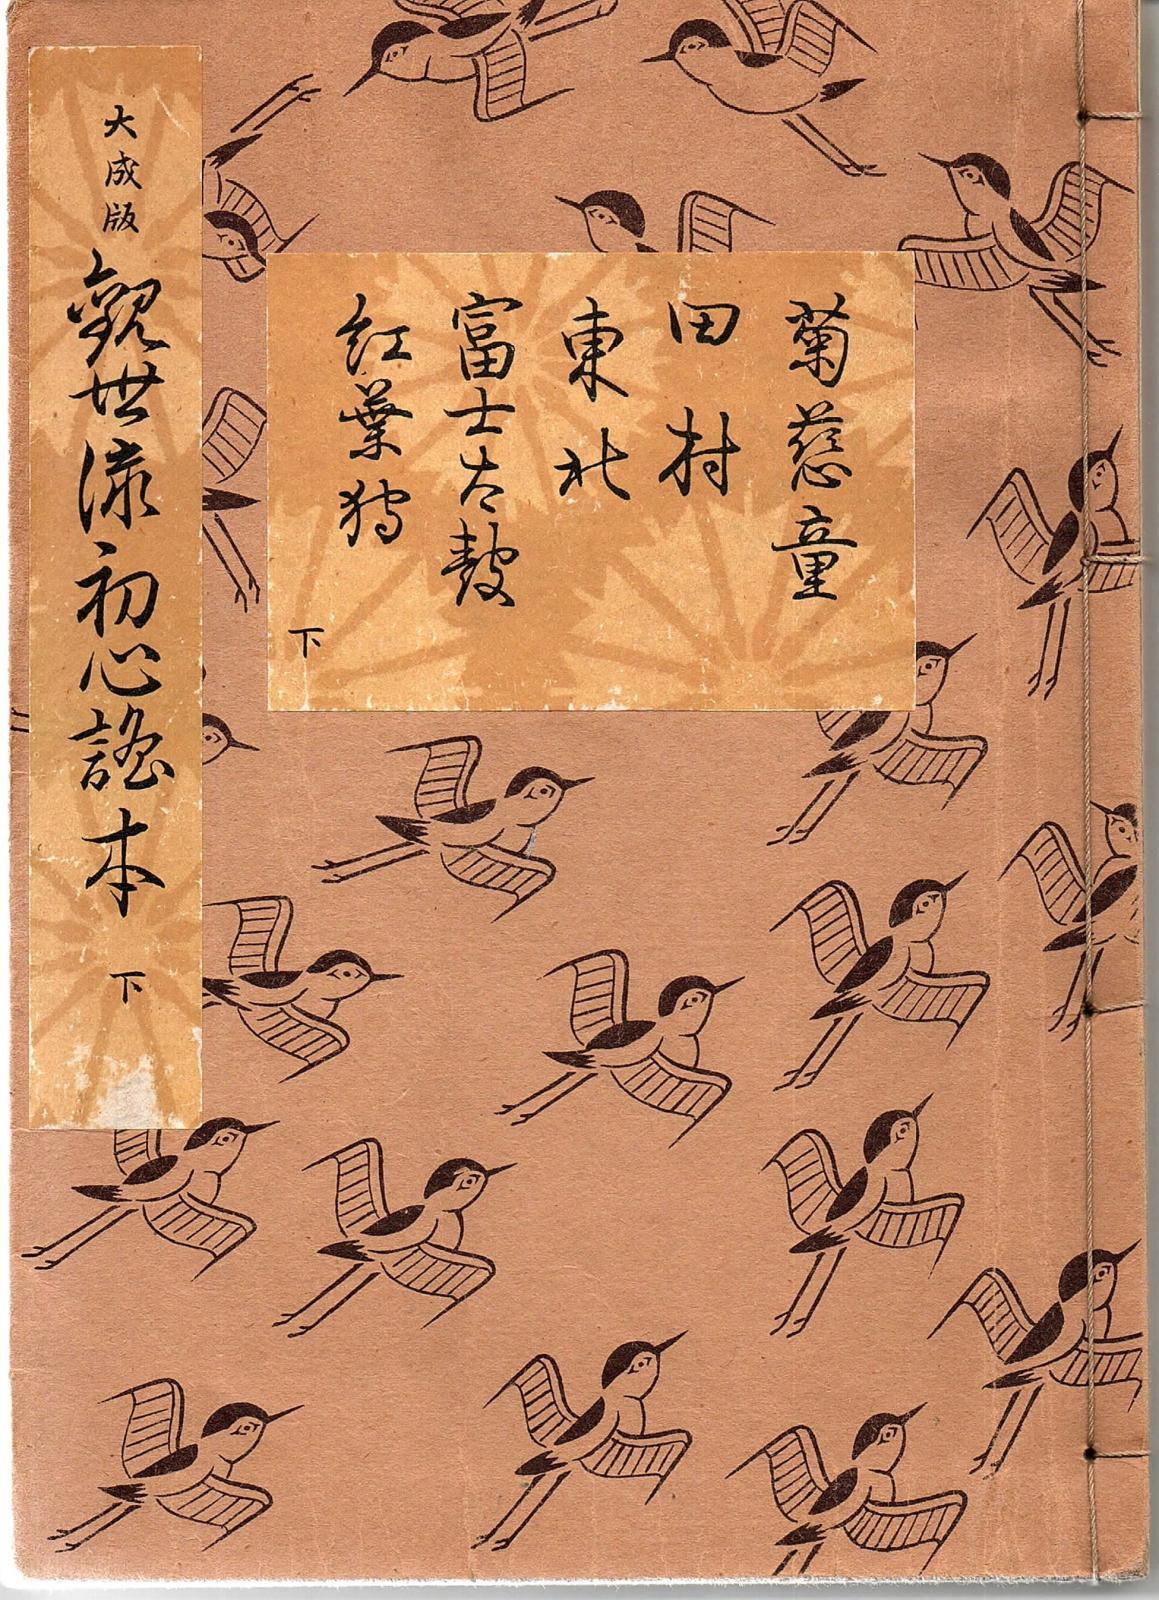 菊慈童
田村
東北
富士太鼓
紅葉狩
下
大成版 觀世流初心謠本 下